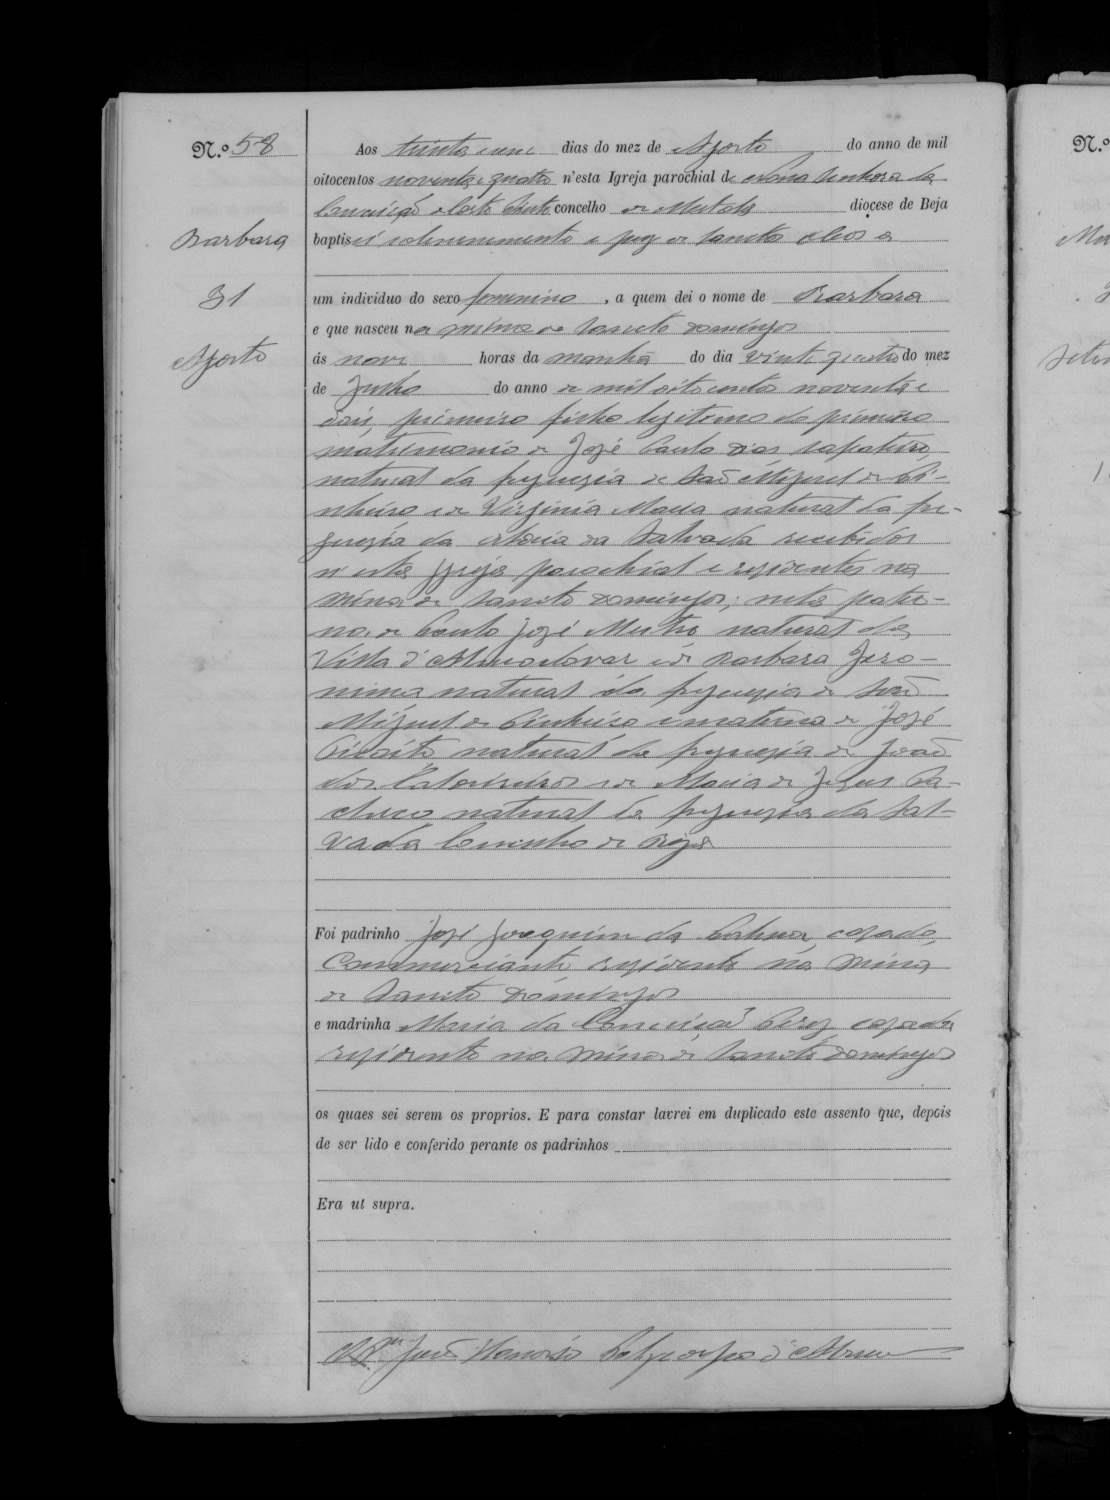 N.º 58
Barbara
31
Agosto
Aos trinta e um dias do mez de Agosto do anno de mil
oitocentos noventa e quatro n'esta Igreja parochial de Nossa Senhora da
Conceição concelho de Mertola diocese de Beja
baptisei solemnemente e puz os sanctos oleos a
um individuo do sexo femenino, a quem dei o nome de Barbara
e que nasceu na mina de Sancto Domingos
ás nove horas da manhã do dia vinte quatro do mez
de Junho do anno de mil oito centos noventa e
dois, primeiro filho legitimo do primeiro
matrimonio de José Paulo Dias sapateiro,
natural da freguezia de São Miguel do Pi-
nheiro e de Virginia Maria natural da fre-
guezia da da Salvada recebidos
n'esta Igreja parochial e rezidentes na
mina de Sancto Domingos; neta pater-
na de Paulo José natural da
Villa d'Almodovar e de Barbara Jero-
nima natural da freguezia de São
Miguel do Pinheiro e materna de José
natural da freguezia de João
dos Caldeireiros e de Maria de Jesus Pa-
checo natural da freguezia da Sal-
vada Concelho de Beja
Foi padrinho José Joaquim da Palma, cazado,
Commerciante, rezidente na mina
de Sancto Domingos
e madrinha Maria da Conceição Perez cazada
rezidente na mina de Sancto Domingos
os quaes sei serem os proprios. E para constar lavrei em duplicado este assento que, depois
de ser lido e conferido perante os padrinhos
Era ut supra.
João Honorio d'Abreu
N.º